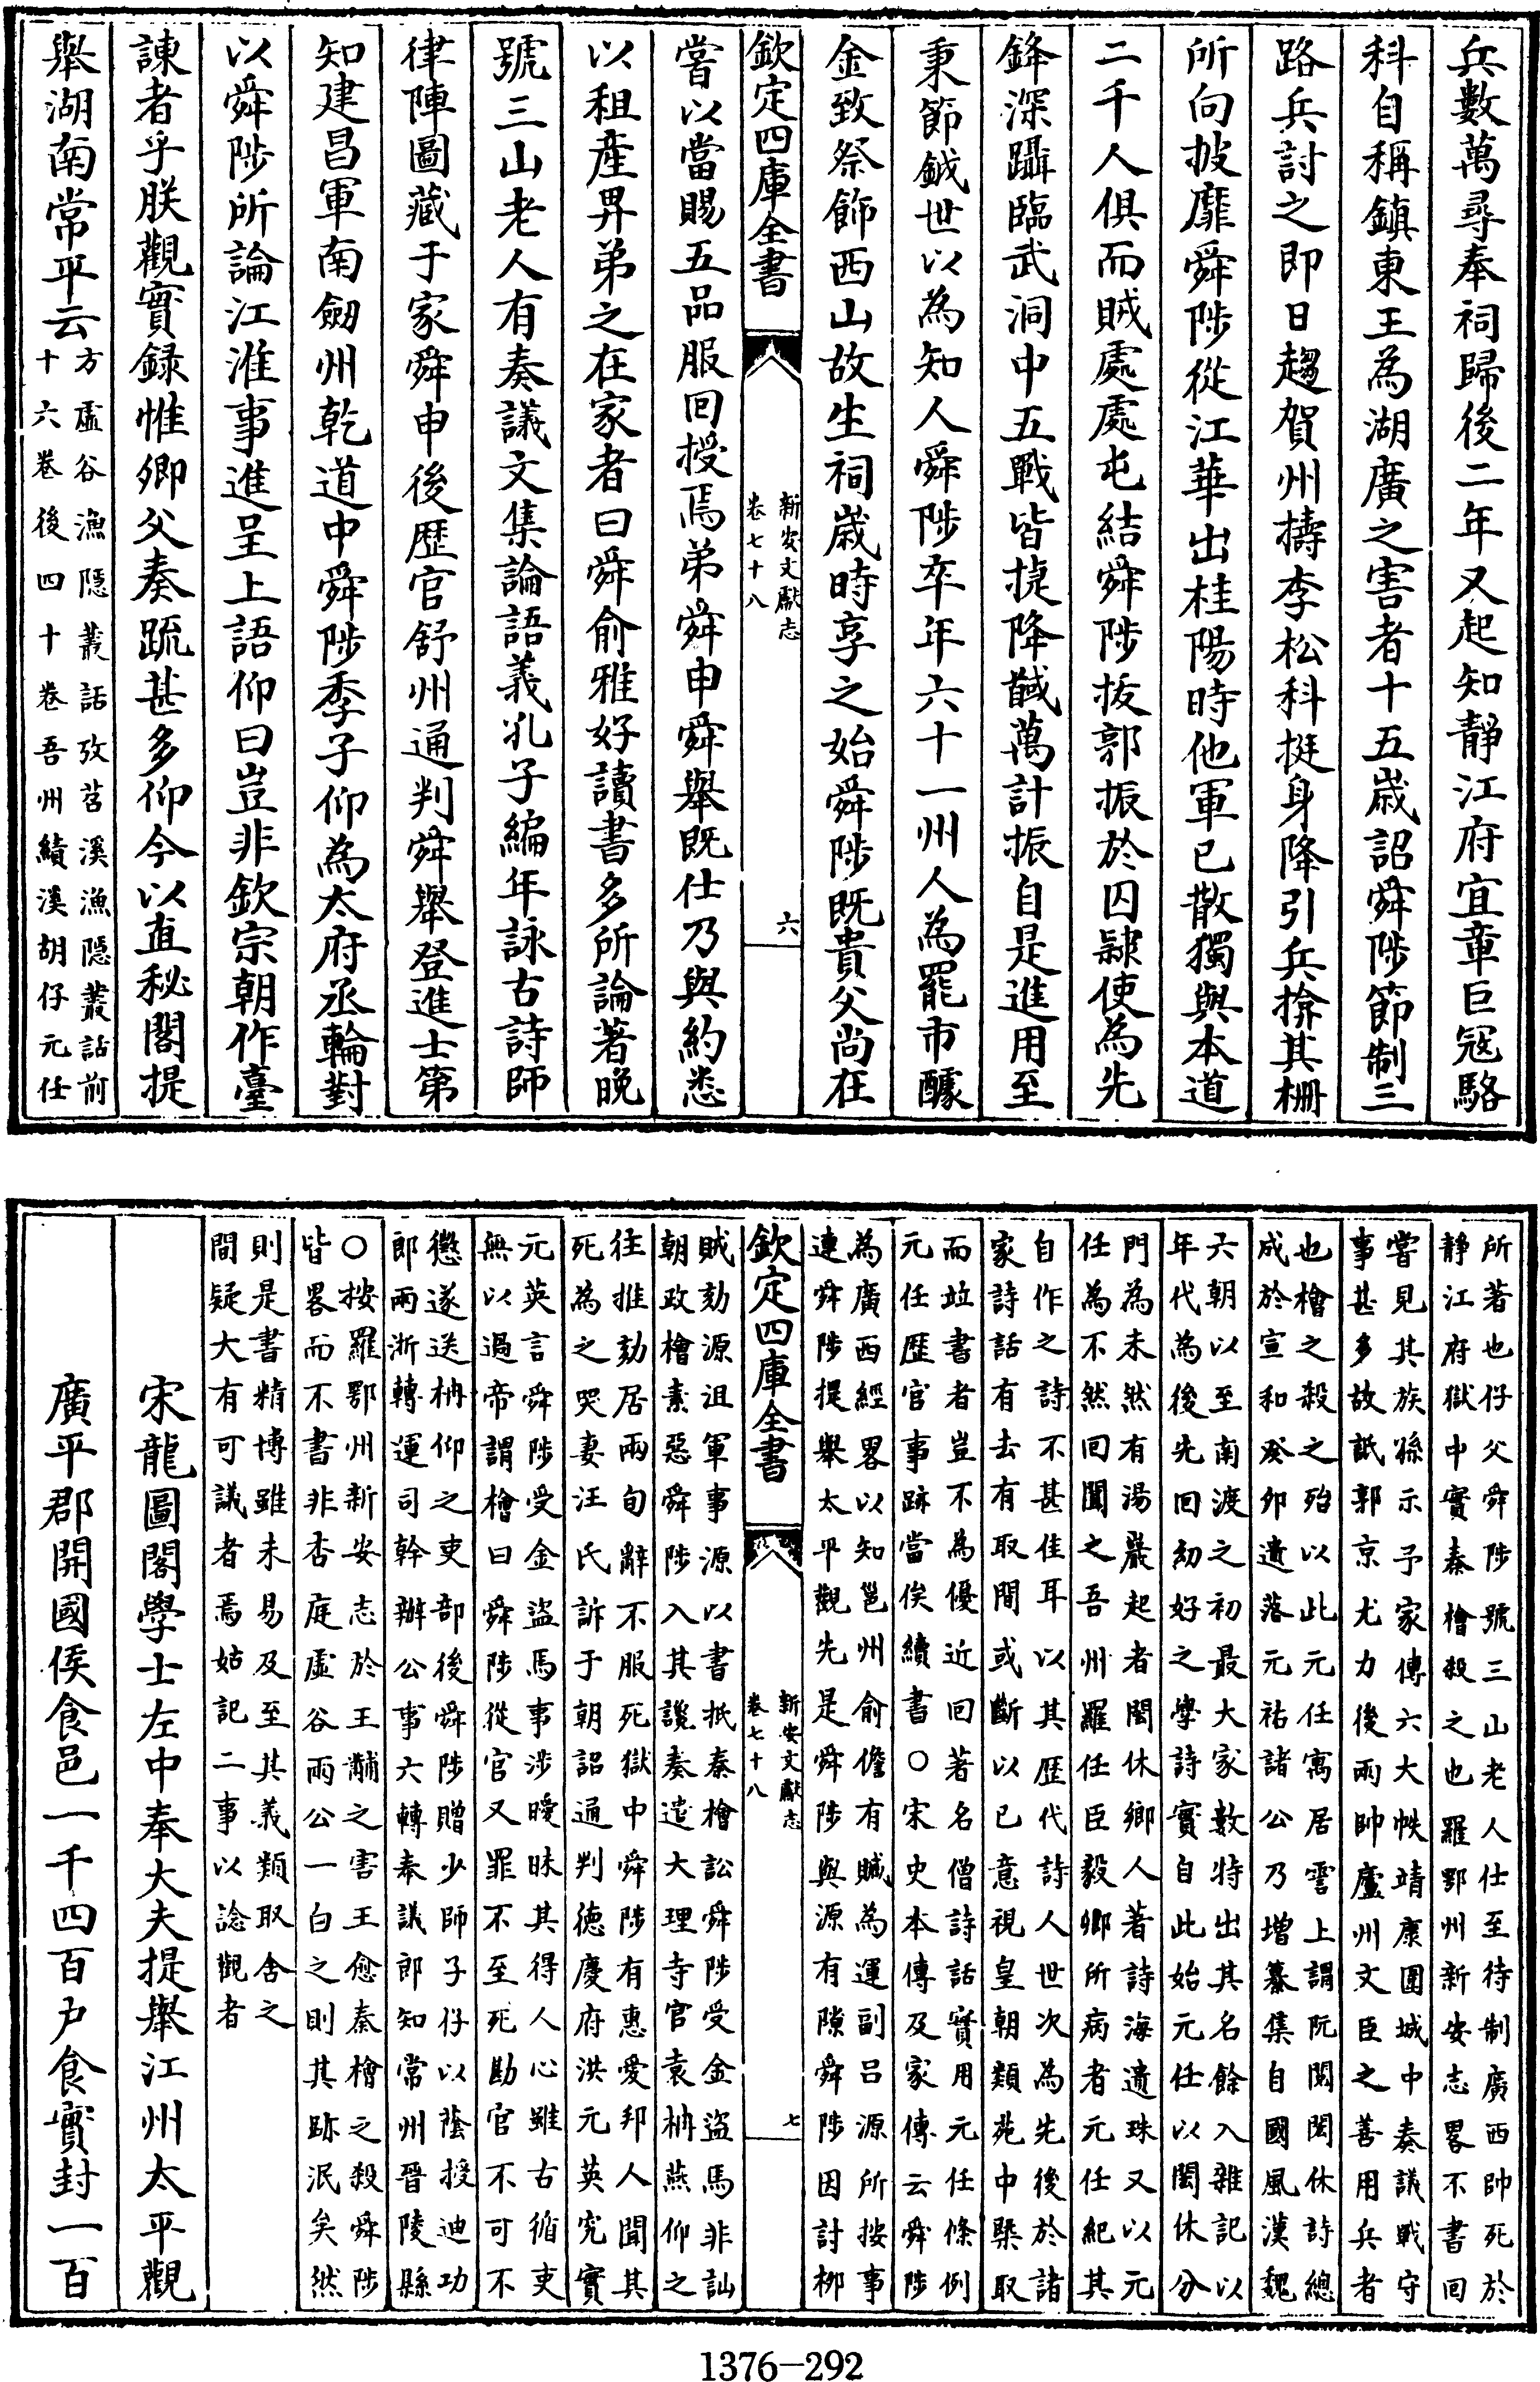 兵數萬尋奉祠歸後二年又起知靜江府宜章巨冦駱
科自稱鎮東王為湖廣之害者十五歲詔舜陟節制三
路兵討之即日趨賀州擣李松科挺身降引兵揜其柵
所向披靡舜陟從江華出桂陽時他軍已散獨與本道
二千人俱而賊處處屯結舜陟拔郭振於囚隸使為先
鋒深躡臨武洞中五戰皆捷降馘萬計振自是進用至
秉節鉞世以為知人舜陟卒年六十一州人為罷市醵
金致祭飾西山故生祠歲時享之始舜陟既貴父尚在
欽定四庫全書
新安文獻志
卷七十八
六
嘗以當賜五品服回授焉弟舜申舜舉既仕乃與約悉
以租產畀弟之在家者曰舜俞雅好讀書多所論著晚
號三山老人有奏議文集論語義孔子編年詠古詩師
律陣圖藏于家舜申後歷官舒州通判舜舉登進士第
知建昌軍南劒州乾道中舜陟季子仰為太府丞輪對
以舜陟所論江淮事進呈上語仰曰豈非欽宗朝作臺
諫者乎朕觀實録惟卿父奏疏甚多仰今以直秘閣提
舉湖南常平云
方虛谷漁隱叢話攷苕溪漁隱叢話前
十六卷後四十卷吾州績溪胡仔元任
所著也仔父舜陟號三山老人仕至待制廣西帥死於
靜江府獄中實秦檜殺之也羅鄂州新安志畧不書回
嘗見其族孫示予家傳六大帙靖康圍城中奏議戰守
事甚多故詆郭京尤力後兩帥廬州文臣之善用兵者
也檜之殺之殆以此元任寓居霅上謂阮閱閎休詩總
成於宣和癸卯遺落元祐諸公乃增纂集自國風漢魏
六朝以至南渡之初最大家數特出其名餘入雜記以
年代為後先回幼好之學詩實自此始元任以閎休分
門為未然有湯巖起者閎休鄉人著詩海遺珠又以元
任為不然回聞之吾州羅任臣毅卿所病者元任紀其
自作之詩不甚佳耳以其歷代詩人世次為先後於諸
家詩話有去有取間或斷以已意視皇朝類苑中槩取
而竝書者豈不為優近回著名僧詩話實用元任條例
元任歷官事跡當俟續書○宋史本傳及家傳云舜陟
為廣西經畧以知邕州俞儋有贓為運副吕源所按事
連舜陟提舉太平觀先是舜陟與源有隙舜陟因討郴
欽定四庫全書
新安文獻志
卷七十八
七
賊劾源沮軍事源以書抵秦檜訟舜陟受金盜馬非訕
朝政檜素惡舜陟入其讒奏遣大理寺官袁柟燕仰之
往推劾居兩旬辭不服死獄中舜陟有惠愛邦人聞其
死為之哭妻汪氏訴于朝詔通判德慶府洪元英究實
元英言舜陟受金盜馬事涉曖昧其得人心雖古循吏
無以過帝謂檜曰舜陟從官又罪不至死勘官不可不
懲遂送柟仰之吏部後舜陟贈少師子仔以蔭授迪功
郎兩浙轉運司幹辦公事六轉奉議郎知常州晉陵縣
○按羅鄂州新安志於王黼之害王愈秦檜之殺舜陟
皆畧而不書非杏庭虛谷兩公一白之則其跡泯矣然
則是書精博雖未易及至其義類取舍之
間疑大有可議者焉姑記二事以諗觀者
宋龍圖閣學士左中奉大夫提舉江州太平觀
廣平郡開國侯食邑一千四百户食實封一百
1376—292